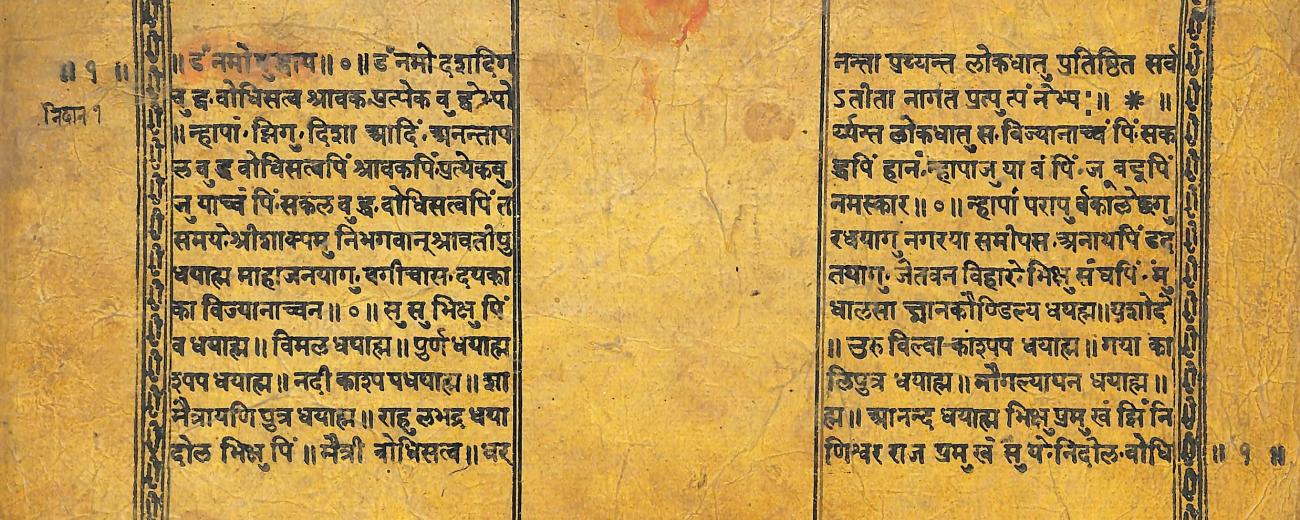 ॥ १ ॥
निदान १
॥ डँ नमो बुद्धाय ॥ ० ॥ डँ नमो दशदिग नन्ता प्रय्यन्त लोकधातु प्रतिष्ठित सर्व
बुद्ध बोधिसत्व श्रावक प्रत्येक बुद्धेभ्यो ऽतीता नागत प्रत्युत्पंनेभ्यः ॥ ❋ ॥
॥ न्हापां झिगु दिशा आदिं अनन्ताप र्य्यन्त लोकधातुस विज्यानाच्वं पिं सक
ल बुद्ध बोधिसत्वपिं श्रावकपिं प्रत्येकबु द्धपिं हानं न्हापा जुया वं पिं ज वइपिं
नु याच्वं पिं सकल बुद्ध बोधिसत्वपिं त नमस्कार ॥ ० ॥ न्हापां परापुर्वकाले छगु
समये श्रीशाक्यमुनिभगवान् श्रावतीपु रधयागु नगरया समीपस अनाथपिं डद
धयाह्म माहाजनयागु बगीचास दयका तयागु जेतवन विहारे भिक्षु संघपिं मु
का विज्यानाच्चन ॥ ० ॥ सु सु भिक्षु पिं धालसा ज्ञानकौण्डिल्य धयाह्म ॥ यशोदे
व धयाह्म ॥ विमल धयाह्म ॥ पुर्ण धयाह्म ॥ उरु विल्वा काश्यप धयाह्म ॥ गया का
श्यप धयाह्म ॥ नदी काश्यप धयाह्म ॥ शा लिपुत्र धयाह्म ॥ मौगल्यायन धयाह्म ॥
मैत्रायणि पुत्र धयाह्म ॥ राहुलभद्र धया ह्म ॥ आनन्द धयाह्म भिक्षु प्रमुखं झिं नि
दोल भिक्षु पिं ॥ मैत्री बोधिसत्व ॥ धर णिश्वर राज प्रमुखं सुये निदोल बोधि
॥ १ ॥